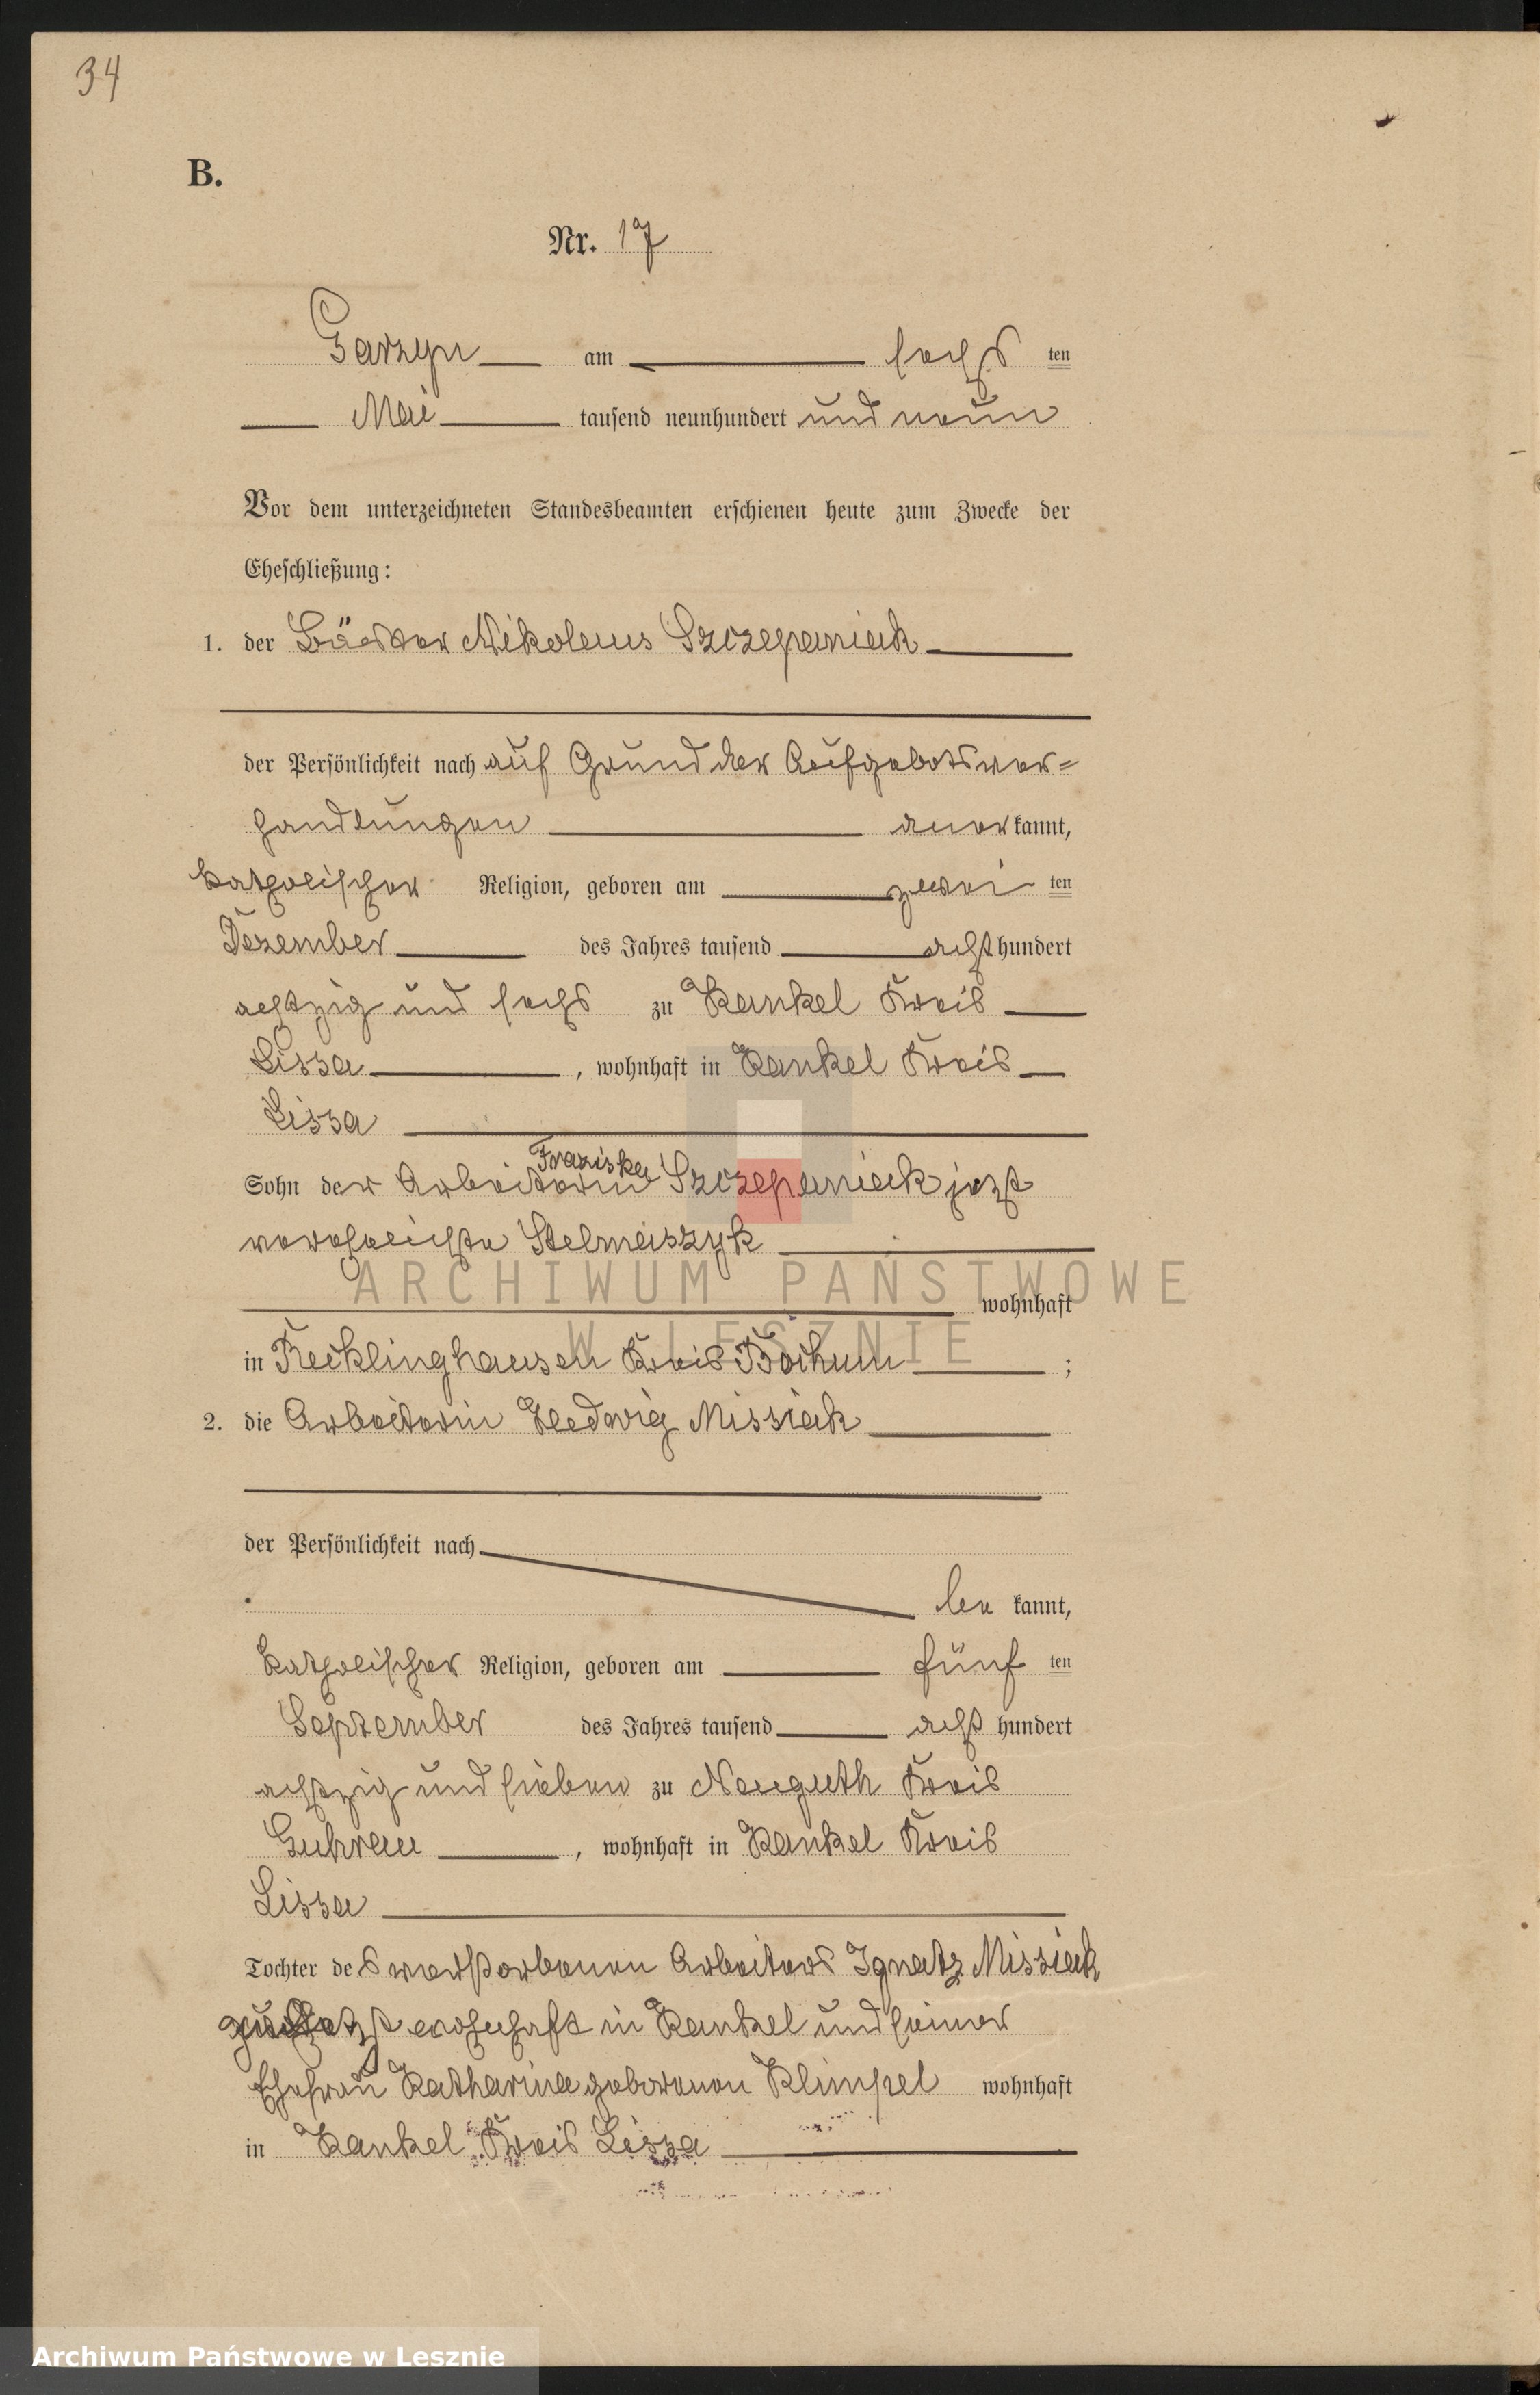 34
B.
Nr. 17
Garzyn am sechs ten
Mai tausend neunhundert und neun
Vor dem unterzeichneten Standesbeamten erschienen heute zum Zwecke der
Eheschließung:
1. der Bäcker Nikolaus Szczepaniak
der Persönlichkeit nach auf Grund der Aufgebotsver=
handlungen anerkannt,
katholischer Religion, geboren am zwei ten
Dezember des Jahres tausend achthundert
achtzig und sechs zu Kankel Kreis
Lissa, wohnhaft in Kankel Kreis
Lissa
Franziska
Sohn der Arbeiterin Szczepaniak jezt
verehelichte Stelmaszyk
ARCHIWUM PAŃSTWOWE
wohnhaft
W LESZNIE
in Recklinghausen Kreis Bochum;
2. die Arbeiterin Hedwig Missiak
der Persönlichkeit nach
be kannt,
katholischer Religion, geboren am fünf ten
September des Jahres tausend acht hundert
achtzig und sieben zu Neuguth Kreis
Guhrau, wohnhaft in Kankel Kreis
Lissa
Tochter des verstorbenen Arbeiters Ignatz Missiak
zuletzt wohnhaft in Kankel und seiner
Ehefrau Katharina geborenen Klimpel wohnhaft
in Kankel Kreis Lissa
Archiwum Państwowe w Lesznie